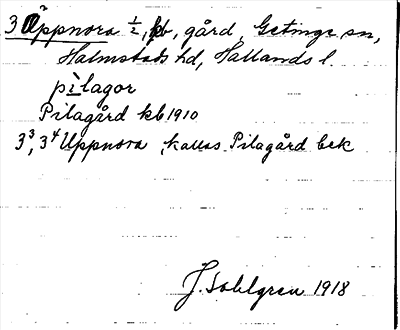 3 Uppnora ½, kb, gård, Getinge sn,
Halmstads hd, Hallands l.
pìlagɔr
Pilagård kb 1910
3³, 3⁴ Uppnora, kallas Pilagård bek
J. Sahlgren 1918